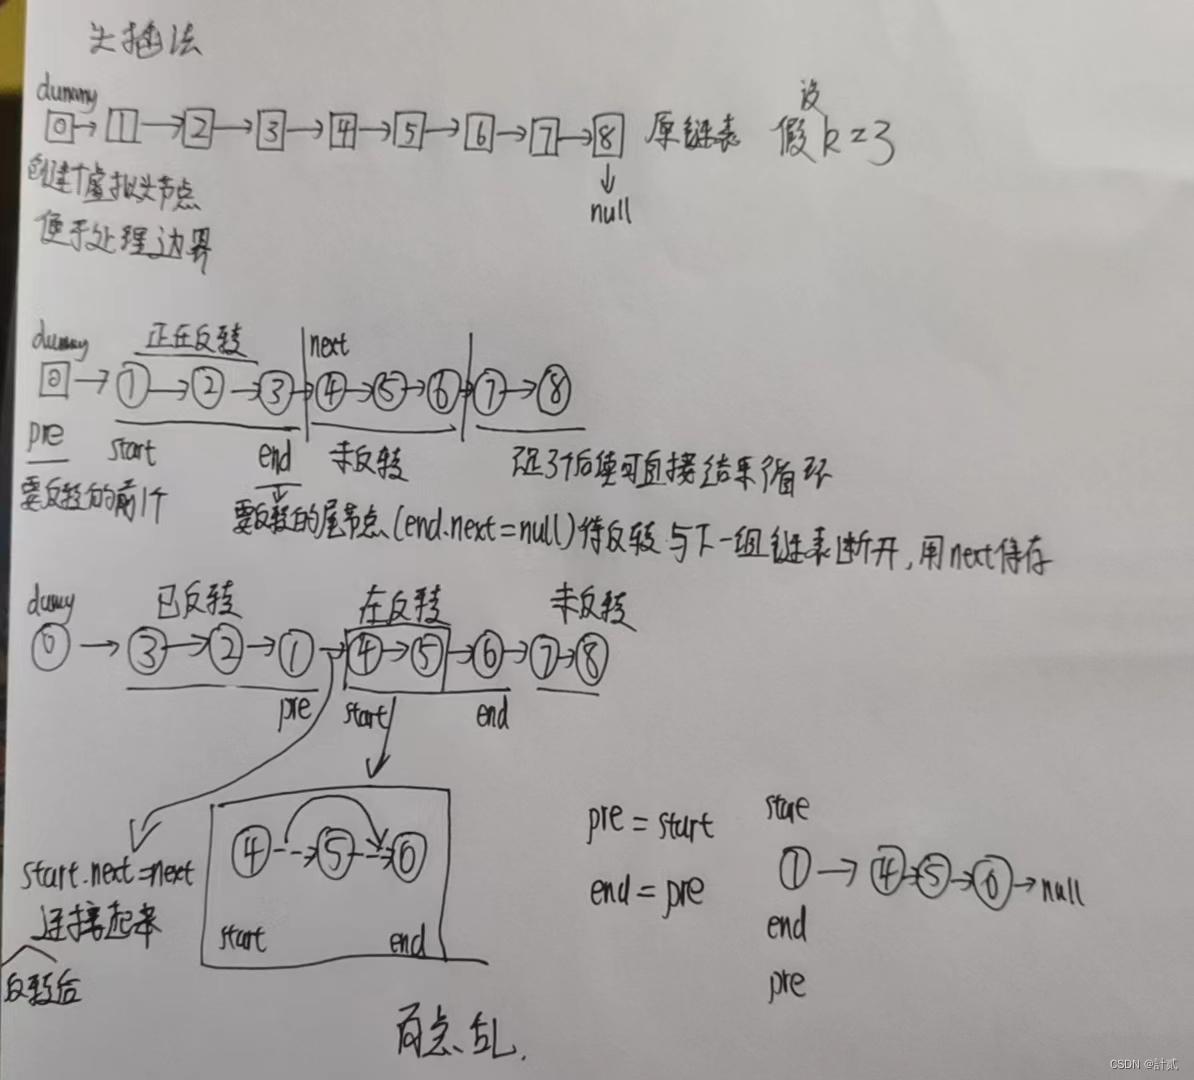 头插法
dummy
0→1→2→3→4→5→6→7→8 原链表 假设k=3
↓
null
创建个虚拟头节点
便于处理边界
dummy 正在反转 next
0→①→②→③→④→⑤→⑥→⑦→⑧
pre start end 未反转
要反转的前1个
要反转的尾节点(end.next=null)待反转与下一组链表断开,用next保存
已反转 在反转 未反转
0→③→②→①→④→⑤→⑥→⑦→⑧
pre start end
④⇢⑤⇢⑥
start end
start.next=next
连接起来
反转后
pre=start
end=pre
①→④→⑤→⑥→null
end
pre
有点乱.
CSDN @計贰